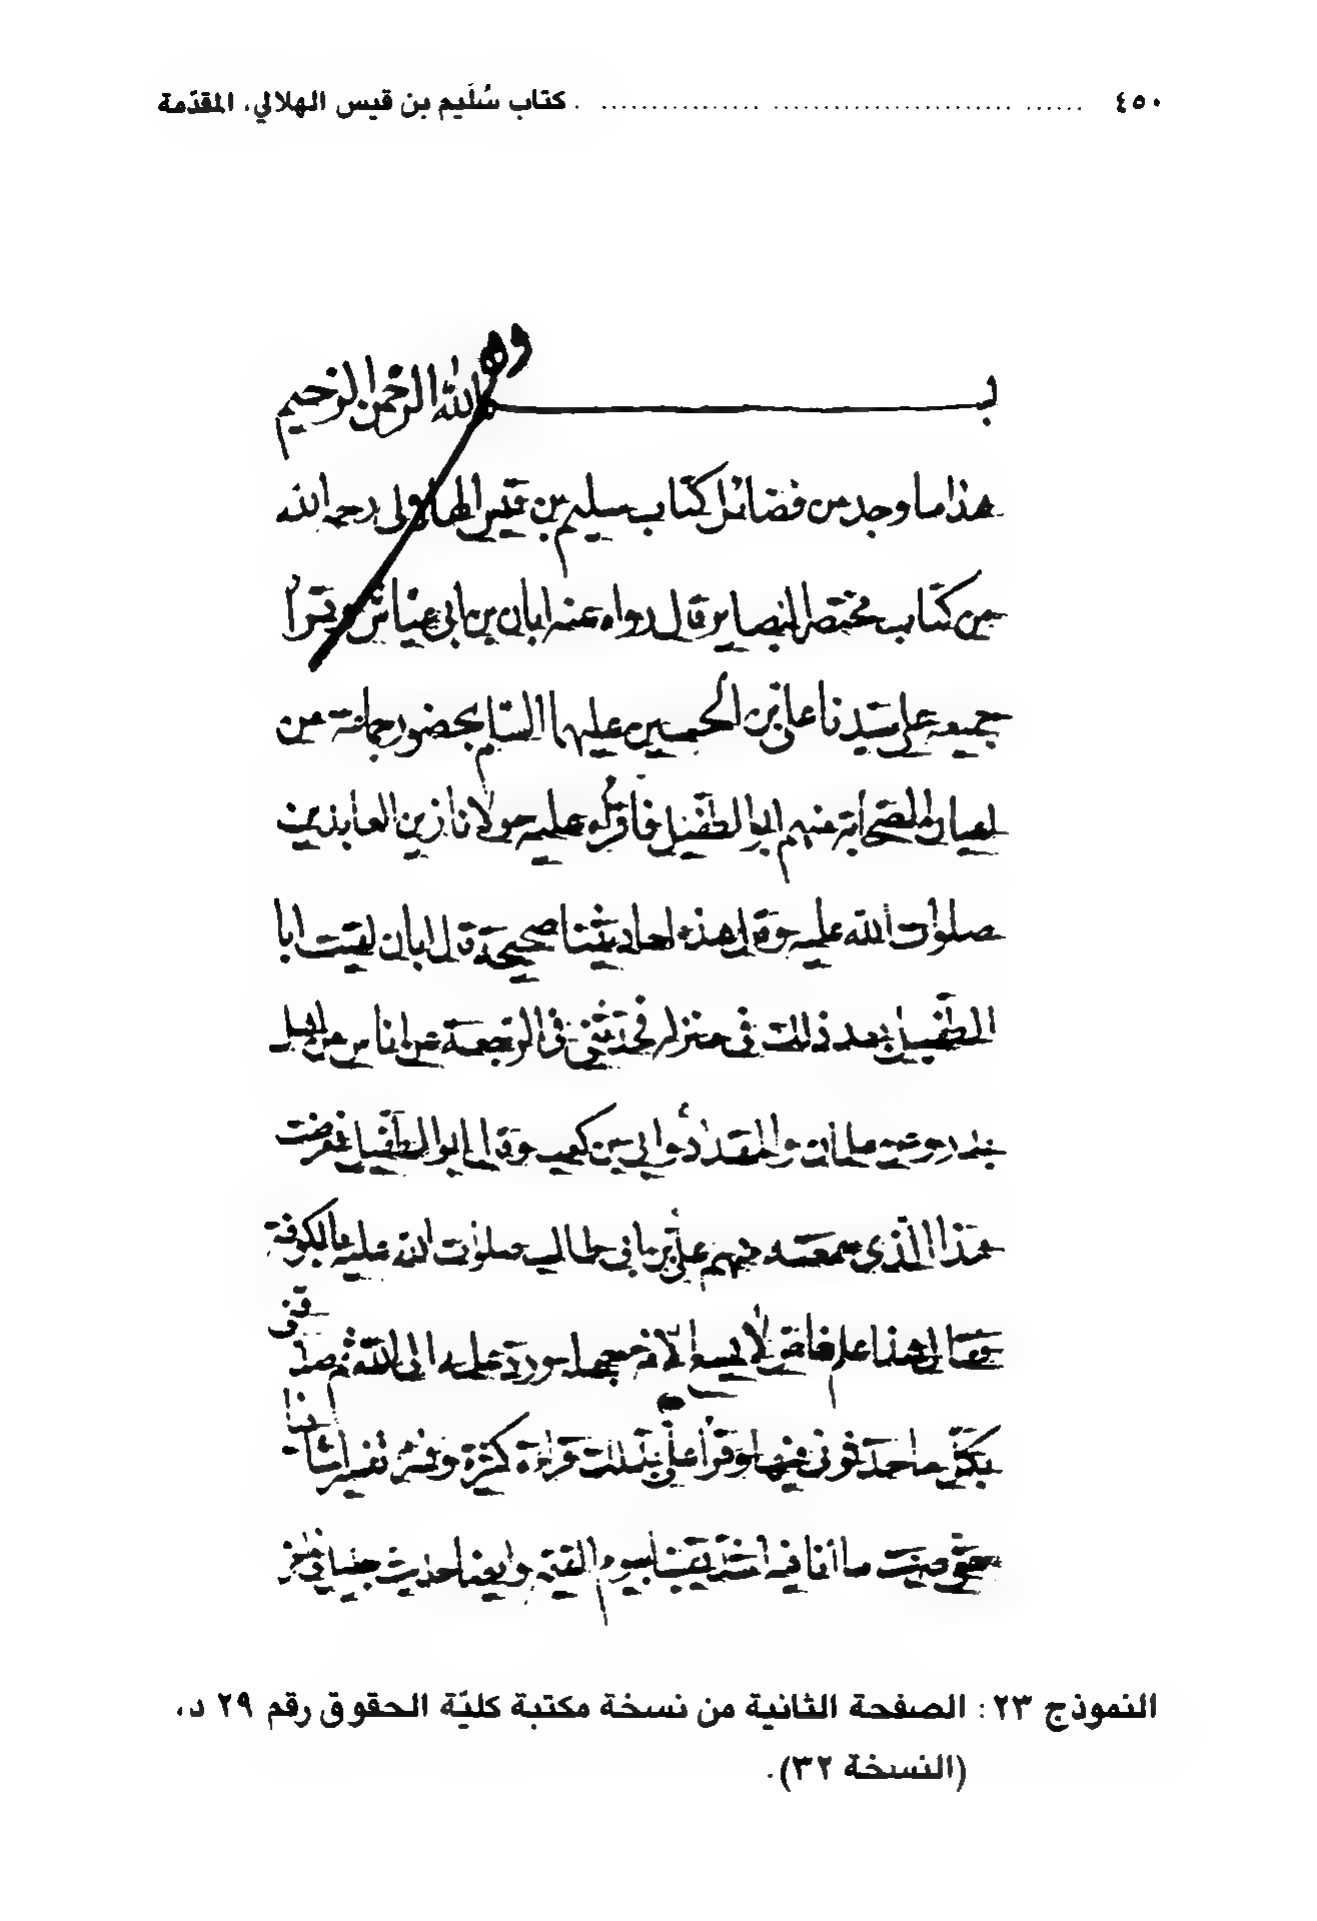 ٤٥٠ ........ كتاب سُلَيم بن قيس الهلالي، المقدّمة
بسم الله الرحمن الرحيم
هذا ما وجد من فضائل كتاب سليم بن قيس الهلالي رحمه الله
من كتاب مختصر البصاير قال رواه عنه ابان بن ابي عياش وقرأ
جميعه على سيدنا علي بن الحسين عليهما السلام بحضور جماعة من
اعيان الصحابة منهم ابو الطفيل فاقرّه عليه مولانا زين العابدين
صلوات الله عليه وقال هذه احاديثنا صحيحة قال ابان لقيت ابا
الطفيل بعد ذلك في منزله فحدثني في الرجعة عن اناس من اهل
بدر وعن سلمان والمقداد وابي بن كعب وقال ابو الطفيل فعرضت
هذا الذي سمعته منهم على علي بن ابي طالب صلوات الله عليه بالكوفة
فقال هذا علم خاص لا يسع الامة جهله ورد علمه الى الله ثم صدقني
بكل ما حدثوني فيها وقرأ علي بذلك قراءة كثيرة وفسّره تفسيرا شافيا
حتى صرت ما انا فيه اشد يقينا بيوم القيمة وايضا حديث
النموذج ٢٣ : الصفحة الثانية من نسخة مكتبة كليّة الحقوق رقم ٢٩ د،
(النسخة ٣٢).